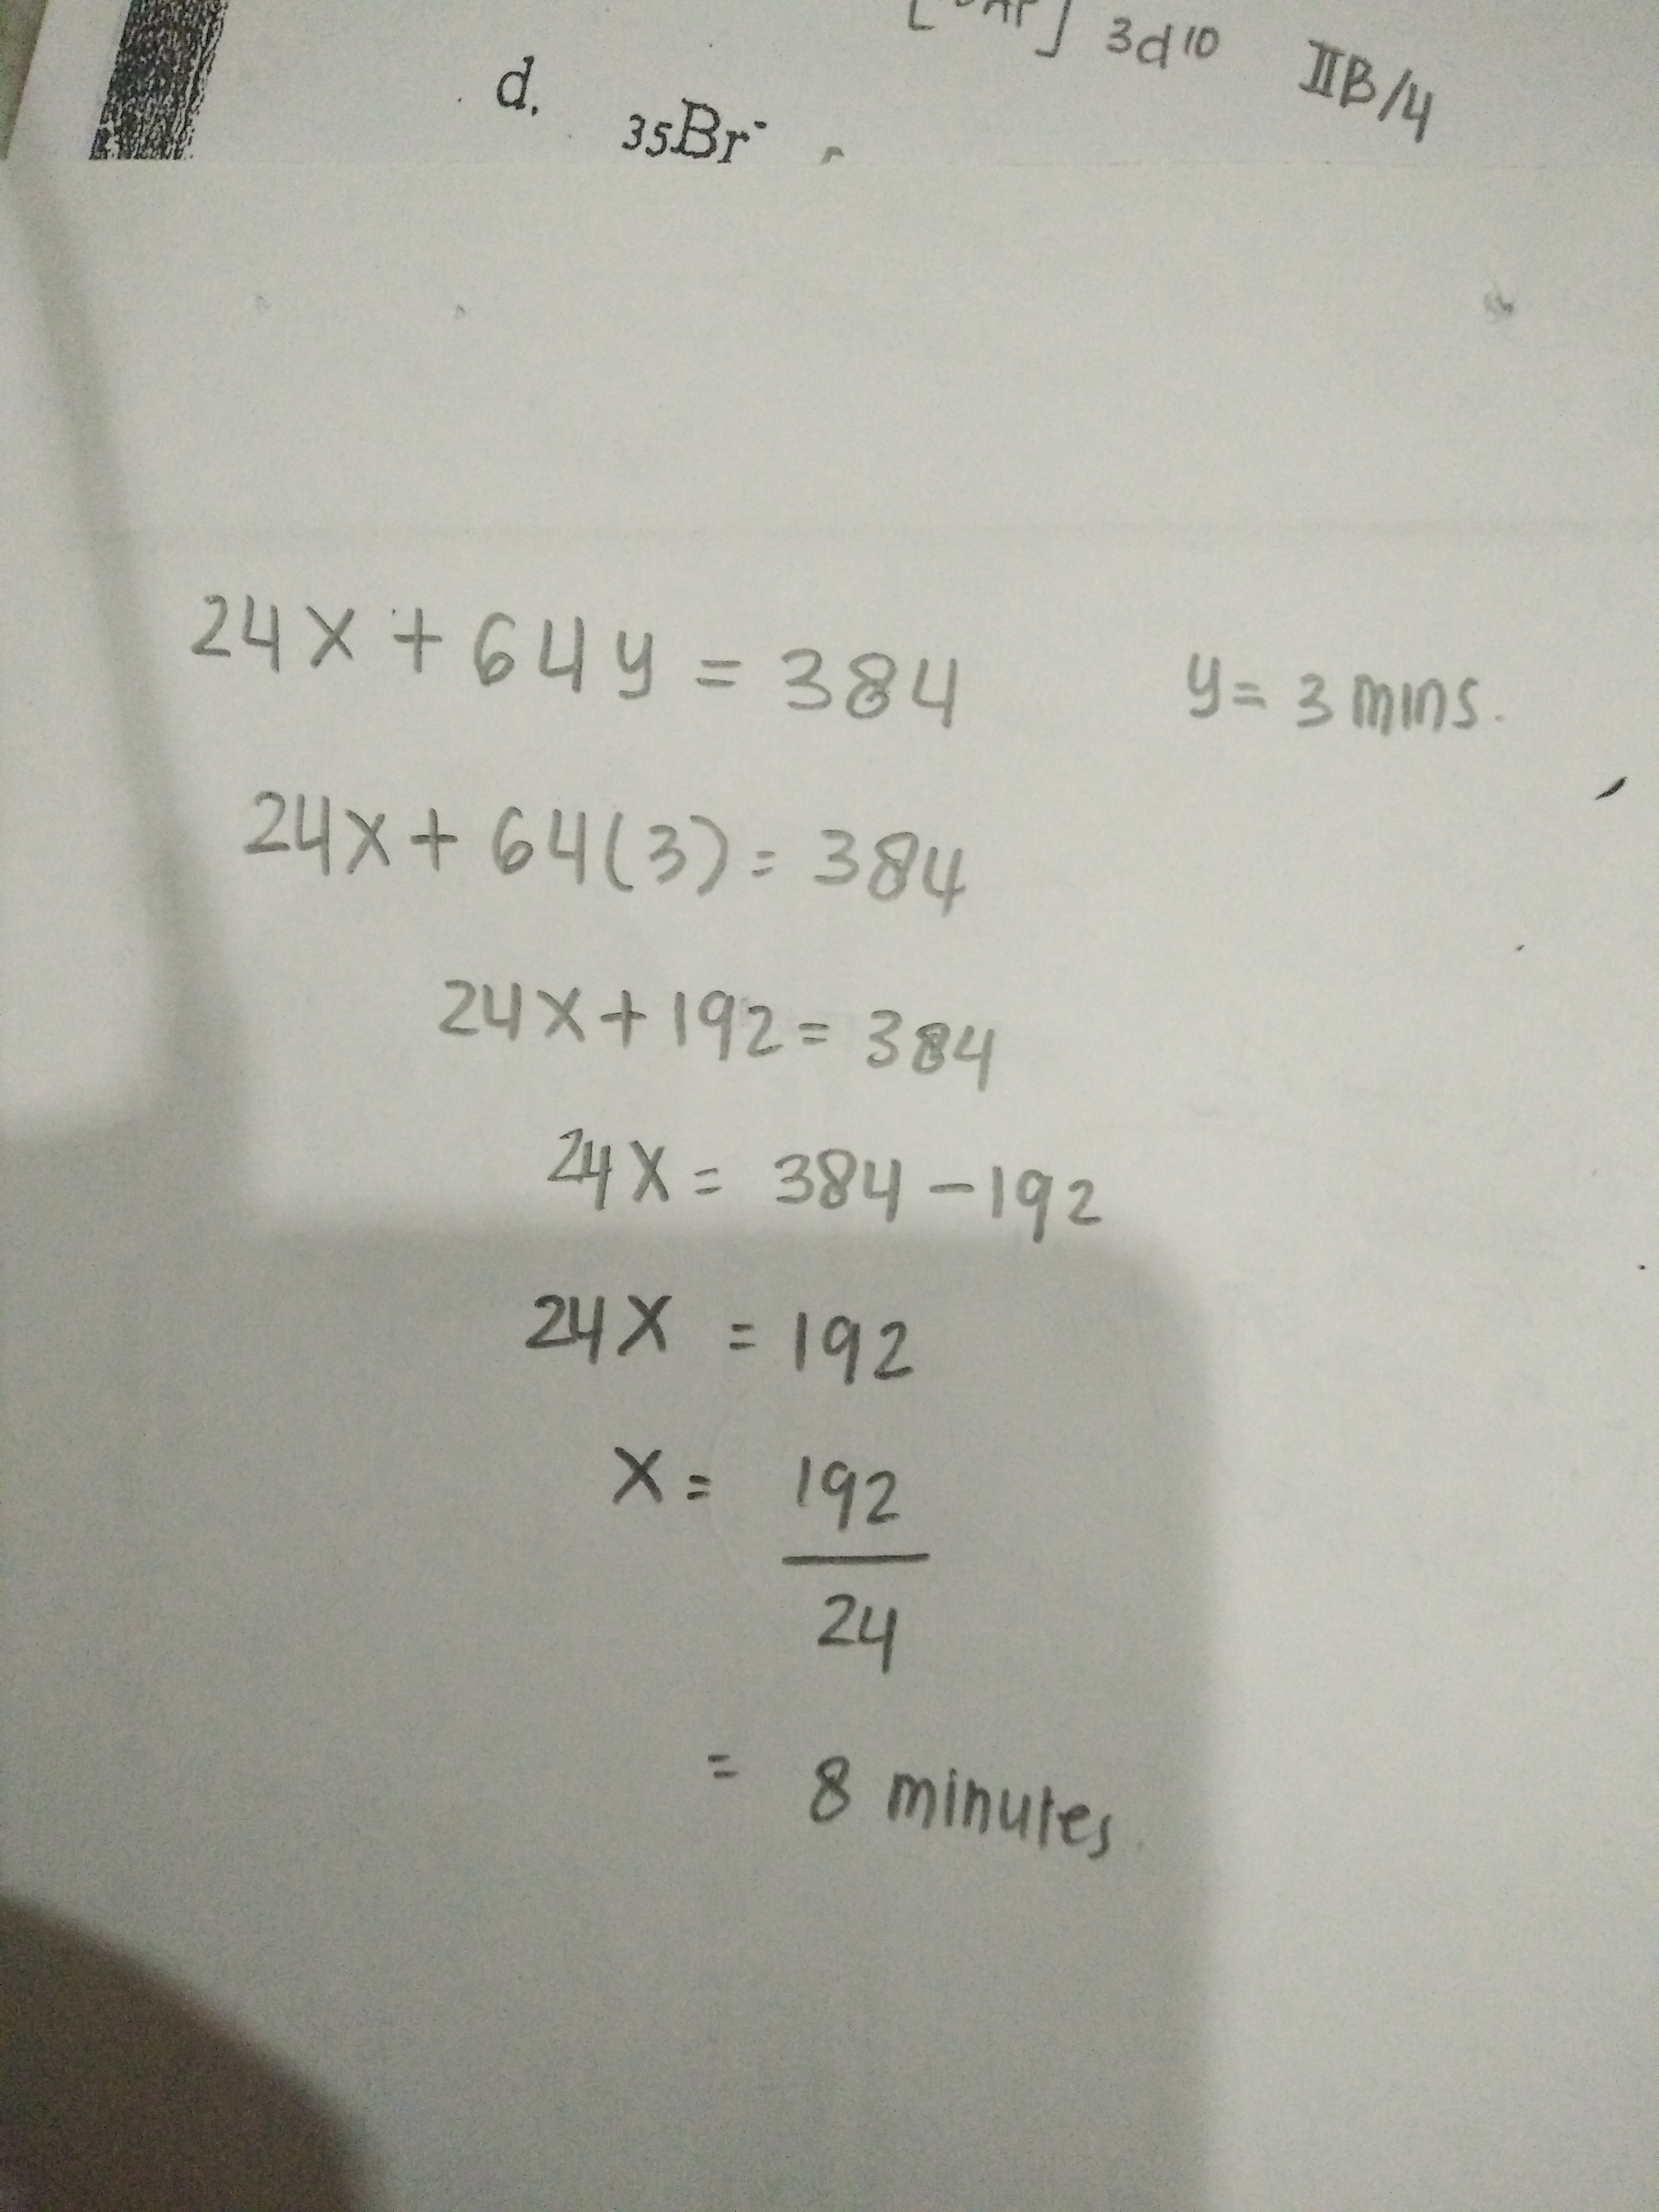 3d¹⁰ IIB/4
d. ₃₅Br⁻
24x + 64y = 384 y = 3 mins.
24x + 64(3) = 384
24x + 192 = 384
24x = 384 - 192
24x = 192
x = 192
24
= 8 minutes.